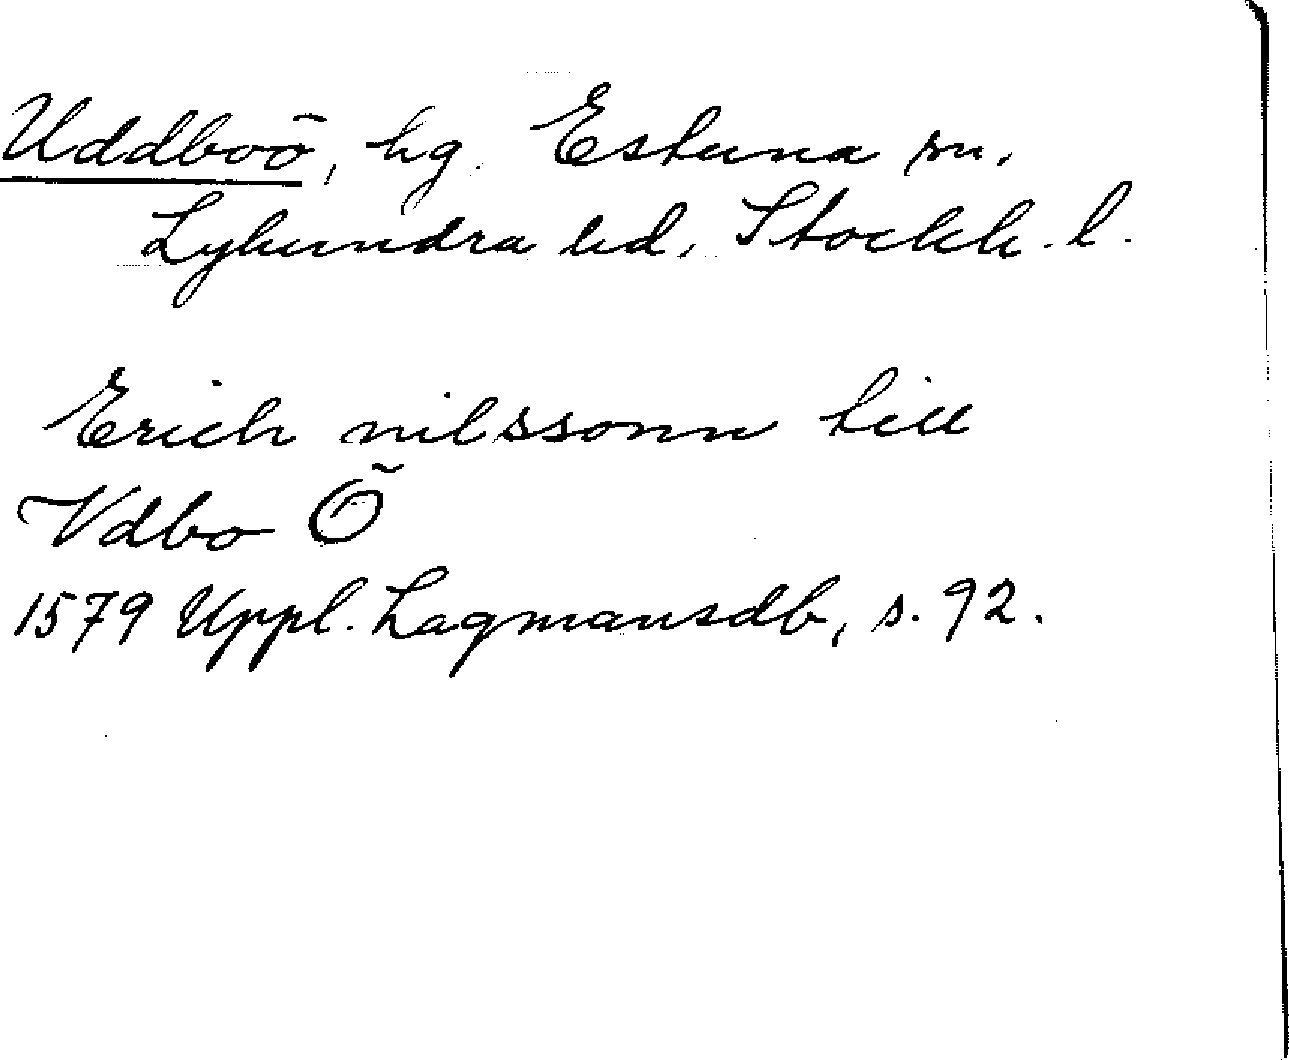 Uddboö, hg. Estuna sn.
Lyhundra hd, Stockh. l.
Erich nilssonn till
Vdbo Ö
1579 Uppl. Lagmansdb, s. 92.